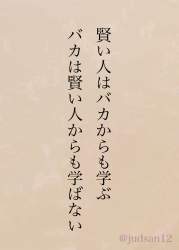 賢い人はバカからも学ぶ
バカは賢い人からも学ばない
@judsan12